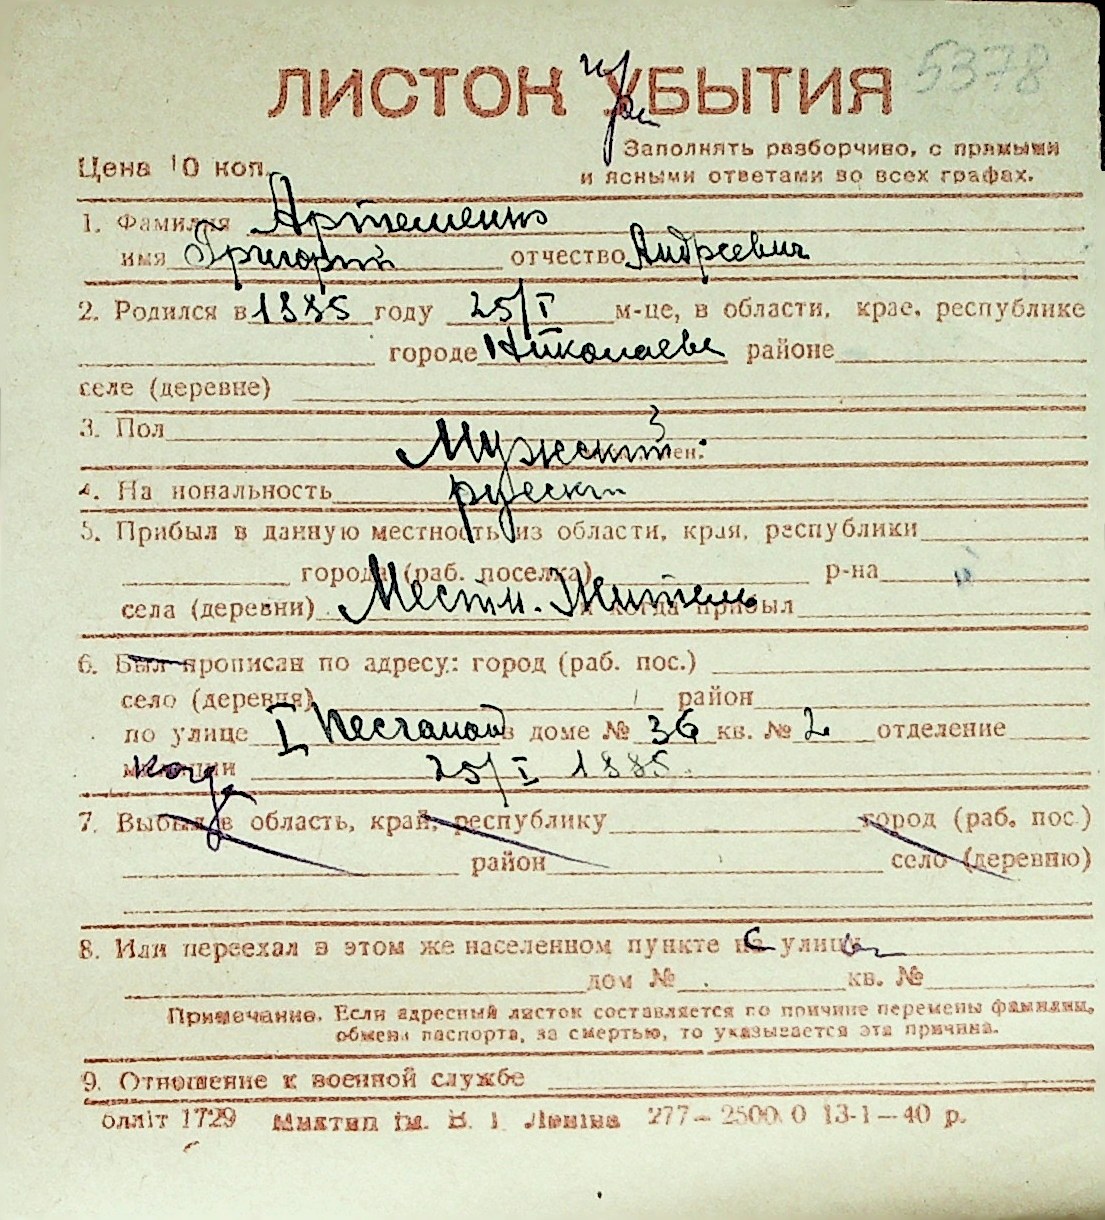 ЛИСТОК УБЫТИЯ 5378
Цена 10 коп.
Заполнять разборчиво, с прямыми
и ясными ответами во всех графах.
1. Фамилия Артеменко
имя Григорий отчество Андреевич
2. Родился в 1885 году 25/I м-це, в области, крае, республике
городе Николаеве районе
селе (деревне)
3. Пол Мужский
4. На иональность руский
5. Прибыл в данную местность из области, края, республики
города (раб. поселка) р-на
села (деревни) Местн. Житель когда прибыл
6. Был прописан по адресу: город (раб. пос.)
село (деревня) район
по улице I Песчаной в доме № 36 кв. № 2 отделение
когда 25/I 1885.
7. Выбыл в область, край, республику город (раб. пос.)
район село (деревню)
8. Или переехал в этом же населенном пункте с улицы
дом № кв. №
Примечание. Если адресный листок составляется по причине перемены фамилии,
обмена паспорта, за смертью, то указывается эта причина.
9. Отношение к военной службе
олліт 1729 Миктип ім. В. І. Леніна 277—2500.0 13-1—40 р.